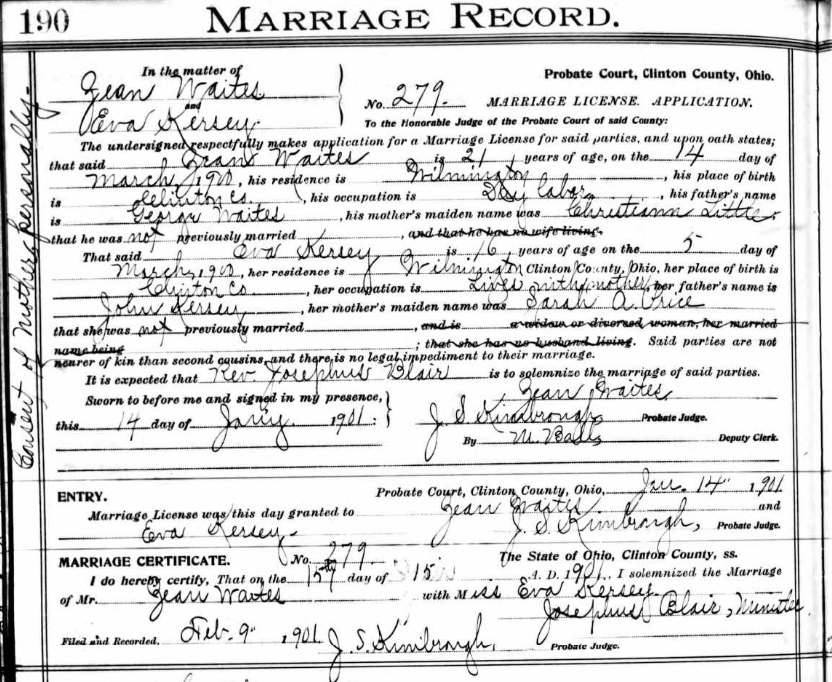 190 MARRIAGE RECORD.
Consent of Mother personally.
In the matter of
Zean Waites
and
Eva Kersey.
Probate Court, Clinton County, Ohio.
No. 279. MARRIAGE LICENSE. APPLICATION.
To the Honorable Judge of the Probate Court of said County:
The undersigned respectfully makes application for a Marriage License for said parties, and upon oath states;
that said Zean Waites is 21 years of age, on the 14 day of
March, 1900, his residence is Wilmington, his place of birth
is Clinton Co., his occupation is Day labor, his father's name
is George Waites, his mother's maiden name was Christiann Little.
that he was not previously married, and that he has no wife living.
That said Eva Kersey is 16 years of age on the 5 day of
March, 1900, her residence is Wilmington Clinton County, Ohio, her place of birth is
Clinton Co, her occupation is Lives with mother, her father's name is
John Kersey, her mother's maiden name was Sarah A. Price
that she was not previously married, and is a widow or divorced woman, her married
name being ; that she has no husband living. Said parties are not
nearer of kin than second cousins, and there is no legal impediment to their marriage.
It is expected that Rev. Josephus Blair is to solemnize the marriage of said parties.
Sworn to before me and signed in my presence, Zean Waites
this 14 day of Jany. 1901: J. S. Kimbrough, Probate Judge.
By M. Deputy Clerk.
ENTRY. Probate Court, Clinton County, Ohio, Jan. 14" 1901
Marriage License was this day granted to Zean Waites and
Eva Kersey. J. S. Kimbrough, Probate Judge.
MARRIAGE CERTIFICATE. No. 279. The State of Ohio, Clinton County, ss.
I do hereby certify, That on the 15th day of 15 A. D. 1901. I solemnized the Marriage
of Mr. Zean Waites with Miss Eva Kersey.
Josephus Blair, Minister.
Filed and Recorded. Feb. 9" 1901. J. S. Kimbrough, Probate Judge.